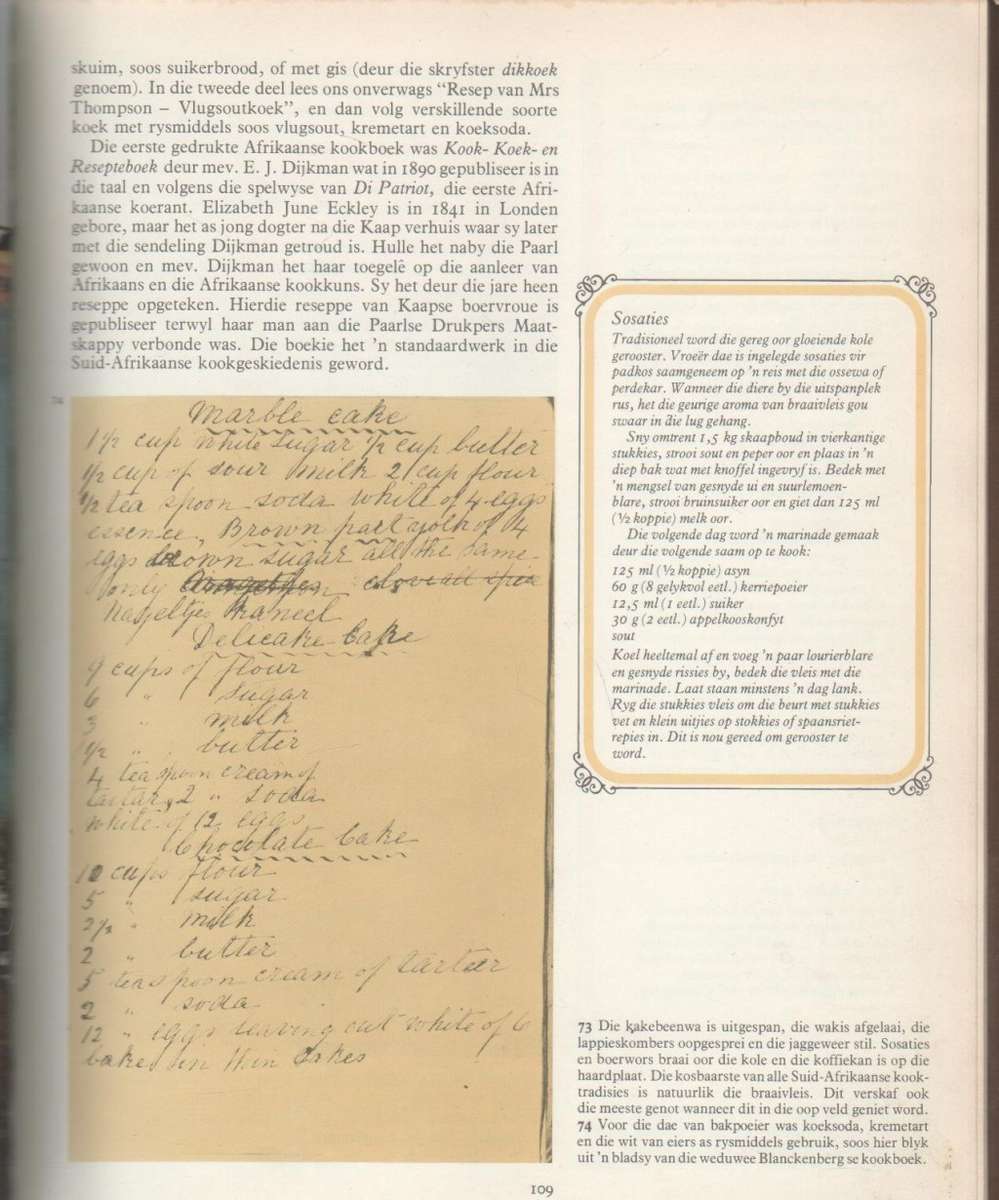 skuim, soos suikerbrood, of met gis (deur die skryfster dikkoek
genoem). In die tweede deel lees ons onverwags “Resep van Mrs
Thompson – Vlugsoutkoek”, en dan volg verskillende soorte
koek met rysmiddels soos vlugsout, kremetart en koeksoda.
Die eerste gedrukte Afrikaanse kookboek was Kook- Koek- en
Resepteboek deur mev. E. J. Dijkman wat in 1890 gepubliseer is in
die taal en volgens die spelwyse van Di Patriot, die eerste Afri-
kaanse koerant. Elizabeth June Eckley is in 1841 in Londen
gebore, maar het as jong dogter na die Kaap verhuis waar sy later
met die sendeling Dijkman getroud is. Hulle het naby die Paarl
gewoon en mev. Dijkman het haar toegelê op die aanleer van
Afrikaans en die Afrikaanse kookkuns. Sy het deur die jare heen
reseppe opgeteken. Hierdie reseppe van Kaapse boervroue is
gepubliseer terwyl haar man aan die Paarlse Drukpers Maat-
skappy verbonde was. Die boekie het ’n standaardwerk in die
Suid-Afrikaanse kookgeskiedenis geword.
74
Marble cake
1½ cup white sugar ½ cup butter
½ cup of sour milk 2 cup flour
½ tea spoon soda white of 4 eggs
essence, Brown part yolk of 4
eggs brown sugar all the same
only
Kaneel
Delicate Cake
9 cups of flour
6 " sugar
3 " milk
1½ " butter
4 tea spoon cream of
tartar, 2 " soda
white of 12 eggs
Chocolate Cake
10 cups flour
5 " sugar
2½ " milk
2 " butter
5 teaspoon cream of tarteer
2 " soda
12 " eggs leaving out white of 6
bake in thin cakes
Sosaties
Tradisioneel word die gereg oor gloeiende kole
gerooster. Vroeër dae is ingelegde sosaties vir
padkos saamgeneem op ’n reis met die ossewa of
perdekar. Wanneer die diere by die uitspanplek
rus, het die geurige aroma van braaivleis gou
swaar in die lug gehang.
Sny omtrent 1,5 kg skaapboud in vierkantige
stukkies, strooi sout en peper oor en plaas in ’n
diep bak wat met knoffel ingevryf is. Bedek met
’n mengsel van gesnyde ui en suurlemoen-
blare, strooi bruinsuiker oor en giet dan 125 ml
(½ koppie) melk oor.
Die volgende dag word ’n marinade gemaak
deur die volgende saam op te kook:
125 ml (½ koppie) asyn
60 g (8 gelykvol eetl.) kerriepoeier
12,5 ml (1 eetl.) suiker
30 g (2 eetl.) appelkooskonfyt
sout
Koel heeltemal af en voeg ’n paar lourierblare
en gesnyde rissies by, bedek die vleis met die
marinade. Laat staan minstens ’n dag lank.
Ryg die stukkies vleis om die beurt met stukkies
vet en klein uitjies op stokkies of spaansriet-
repies in. Dit is nou gereed om gerooster te
word.
73 Die kakebeenwa is uitgespan, die wakis afgelaai, die
lappieskombers oopgesprei en die jaggeweer stil. Sosaties
en boerwors braai oor die kole en die koffiekan is op die
haardplaat. Die kosbaarste van alle Suid-Afrikaanse kook-
tradisies is natuurlik die braaivleis. Dit verskaf ook
die meeste genot wanneer dit in die oop veld geniet word.
74 Voor die dae van bakpoeier was koeksoda, kremetart
en die wit van eiers as rysmiddels gebruik, soos hier blyk
uit ’n bladsy van die weduwee Blanckenberg se kookboek.
109